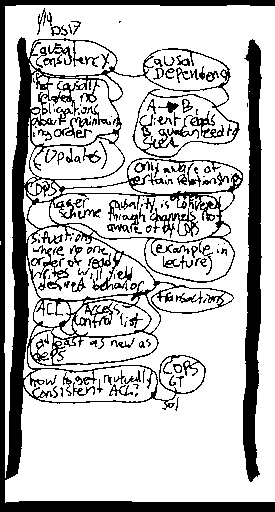 Causal
Consistency
Causal
Dependency
Not causally
related, no
obligations
about maintain
ing order
A → B
Client reads
B, guaranteed to
see A
(Updates)
only aware of
certain relationships
COPS
larger
scheme
causality is conveyed
through channels not
aware of by COPS
situations
where no one
order of reads
writes will yield
desired behavior
example in
lecture
transactions
ACL
Access
Control list
at least as new as
deps
how to get mutually
consistent ACL?
COPS
GT
sol